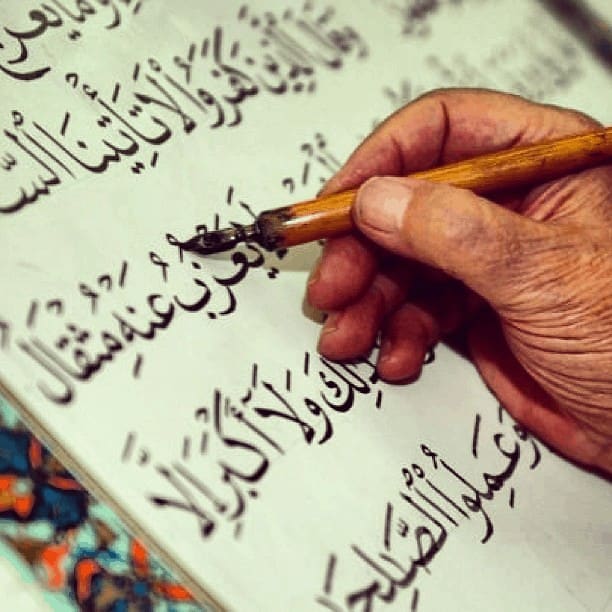 وَمَا يَعْرُجُ
وَقَالَ ٱلَّذِينَ كَفَرُوا۟ لَا تَأْتِينَا ٱلسَّ
يَعْزُبُ عَنْهُ مِثْقَالُ
ذَٰلِكَ وَلَآ أَكْبَرُ إِلَّا
وَعَمِلُوا۟ ٱلصَّٰلِحَـ